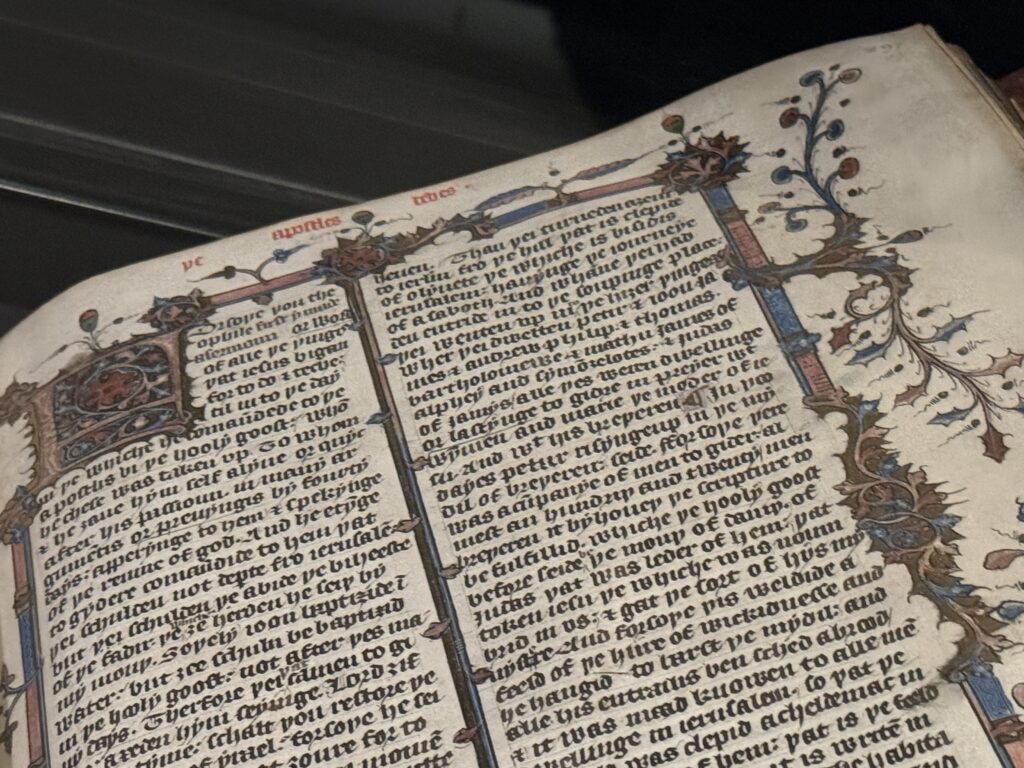 þe apostles dedes
orsoþe þou the
ophile first
a sermoun
of alle þe þingis
þat iesus bigan
for to do & teche
til in to þe day
in þe whiche he comaundede to þe
apostlis bi þe hooly goost. whō
he chese was taken up. To whom
& he ȝaue hym self alyue or quic
after his passioun. in many ar
gumentis or preuyngis by fourty
days: apperynge to hem & spekynge
of þe rewme of god. And he etynge
to gydere comaundide to hem þat
þei schulden not depte fro ierusalē
but þei schulden abide þe biheeste
of þe fadir. þe ȝe herden he seiþ by
my mouþ. Soþely ioon baptizide ī
water. but ȝee schuln be baptizid
in þe hooly goost. not after þes ma
ny days. Therfore þei camen to ge
axeden hym seyinge. Lord ȝif
tyme. schalt þou restore þe
of israel. forsoþe he sei
ȝoure for to
heuen. Than þei turneden aȝein
to ierlm fro þe hill þat is clepid
of olyuete þe whiche is bisidis
ierusalem: hauynge þe iourneye
of a saboth. And whane þei had
den entride in to þe soupinge place.
þei wenten up in þe hiȝer þingis
wher þei dwelten petir & ioon ja
mes & andrew philip & thomas.
bartholomewe & mathu. james of
alphey and symō zelotes. & judas
of jamys. alle þes weren dwellinge
or lastynge to gidre in preyer wt
wymen and marie þe moder of ie
su. And wt his breþeren. In þoo
dayes petur risynge up in þe my
dil of breþeren: seide. fforsoþe þere
was a cūpanye of men to gider. al
mest an hundrid and twenty. men
breþeren it byhoueþ þe scripture to
be fulfillid. whiche þe hooly goost
before seide. þe mouþ of dauiþ. of
Judas þat was leder of hem. þat
token iesu þe whiche was noum
brid in us. & gat þe sort of þis my
nystre And forsoþe þis weldide a
feeld of þe hire of wickidnesse and
he hangid to barst þe mydil. and
alle his entrailis ben sched abrood
& it was maad knowen to alle mē
dwellinge in ierusalem. so þat þe
was clepid acheldemac in
of hem. þat is þe feeld
is writē in
habita